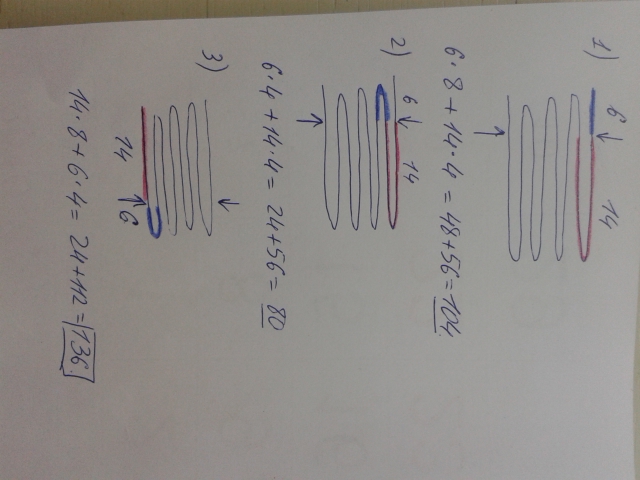 1)
6
14
6·8 + 14·4 = 48+56 = 104
2)
6
14
6·4 + 14·4 = 24+56 = 80
3)
14
6
14·8 + 6·4 = 24+112 = 136